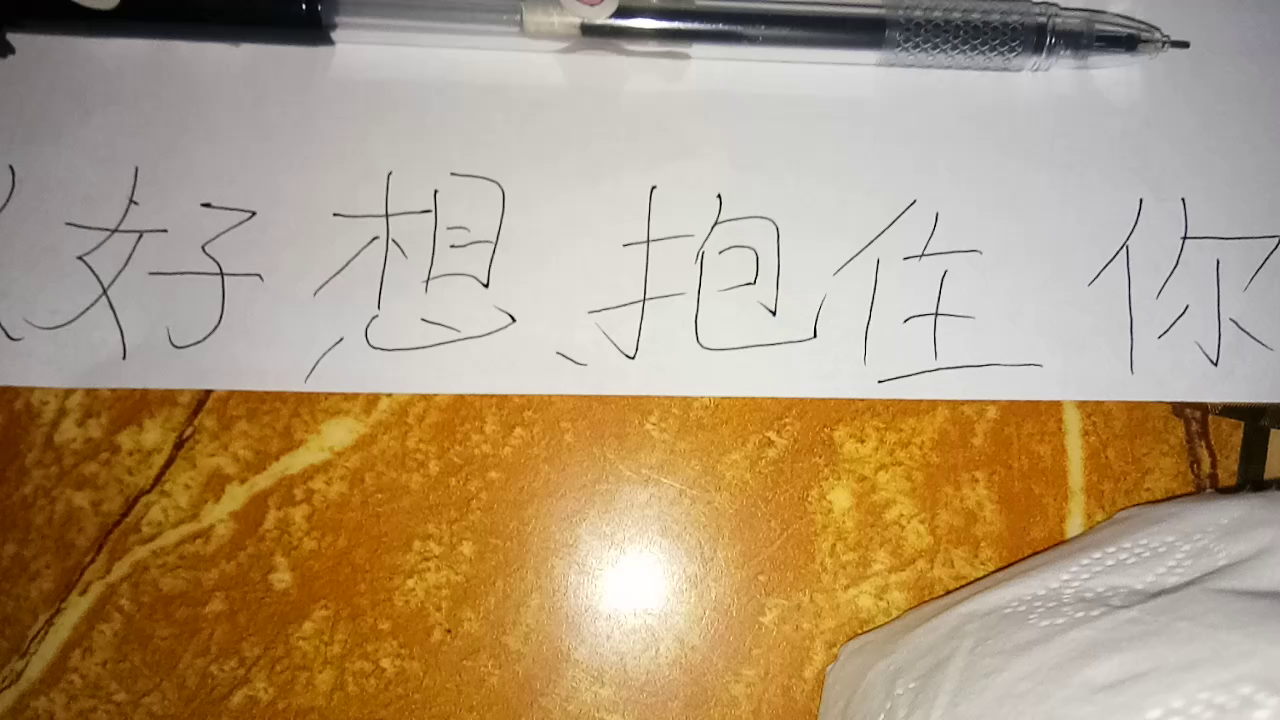 好想抱住你